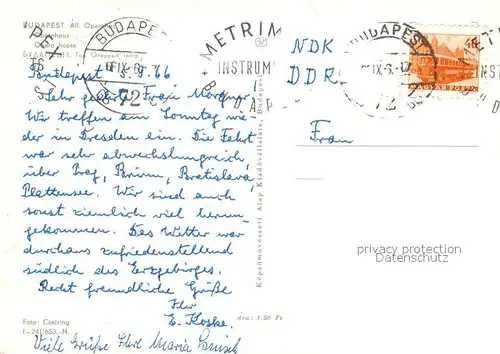 BUDAPEST. Áll. Operaház
Opernhaus
Opera house
BUDAPEST
METRIM
INSTRUM
NDK
DDR
BUDAPEST
72
MAGYAR POSTA
Budapest 3.9.66
Sehr geehrte Frau Morgner
Wir treffen am Sonntag wie-
der in Dresden ein. Die Fahrt
war sehr abwechslungreich,
über Prag, Brünn, Bratislava,
Plattensee. Wir sind auch
sonst ziemlich viel herum-
gekommen. Das Wetter war
durchaus zufriedenstellend
südlich des Erzgebirges.
Recht freundliche Grüße
Ihr
E. Koske.
Frau
privacy protection
Datenschutz
Képzőművészeti Alap Kiadóvállalata, Budapest
Ára: 1.50 Ft
Foto: Czeizing
I-241/653.-N.
Viele Grüße Ihre Maria